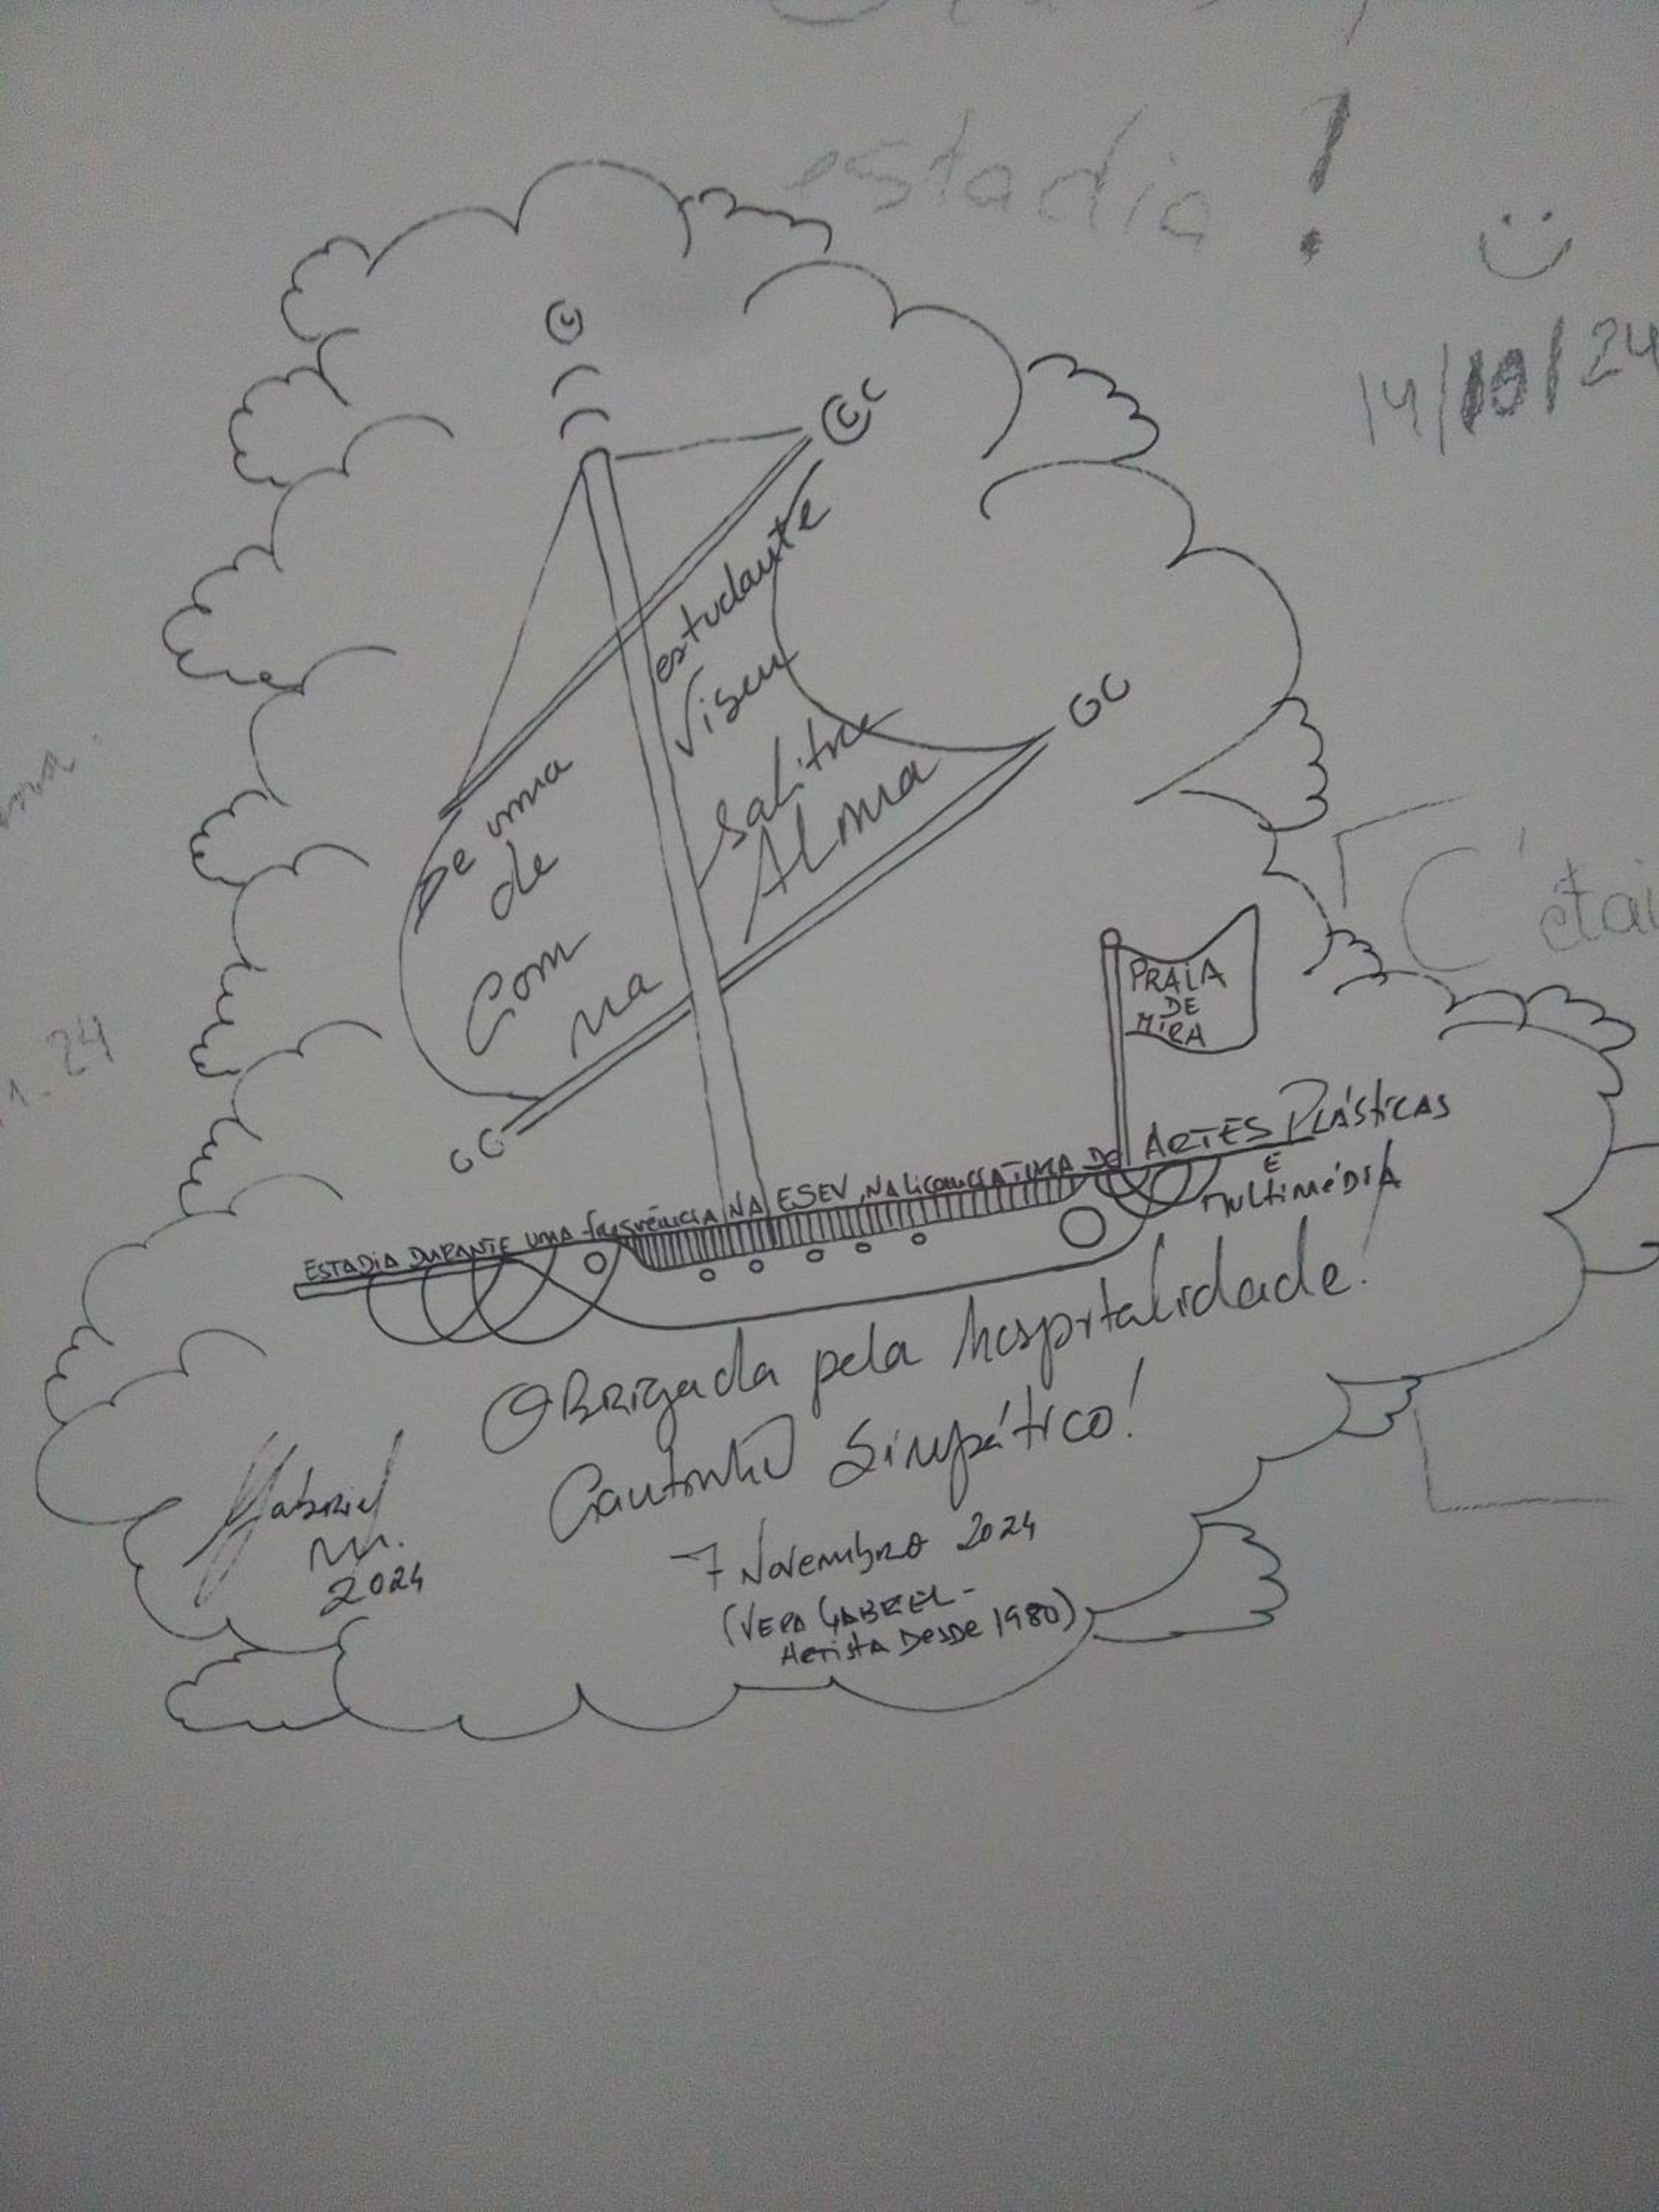 estadia!
14/10/24
De uma estudante
de Viseu
Com Salitre
na Alma
C'étai
1.24
PRAIA
DE
MIRA
ESTADIA DURANTE UMA frequência NA ESEV, NA LicenciATURA DE ARTES PLÁSTICAS
E
MULTIMÉDIA
OBRIGADA pela hospitalidade!
Cantinho Simpático!
7 Novembro 2024
(VERA GABRIEL-
ARTISTA DESDE 1980)
Gabriel
M.
2024